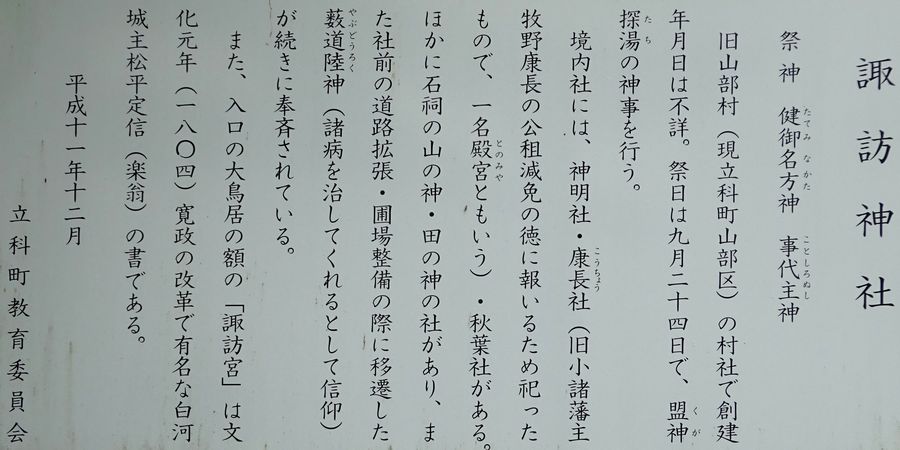 諏訪神社
祭神　健御名方神　事代主神
たてみなかた　ことしろぬし
旧山部村（現立科町山部区）の村社で創建
年月日は不詳。祭日は九月二十四日で、盟神
くが
探湯の神事を行う。
たち
境内社には、神明社・康長社（旧小諸藩主
こうちょう
牧野康長の公租減免の徳に報いるため祀った
もので、一名殿宮ともいう）・秋葉社がある。
とのみや
ほかに石祠の山の神・田の神の社があり、ま
た社前の道路拡張・圃場整備の際に移遷した
藪道陸神（諸病を治してくれるとして信仰）
やぶどうろく
が続きに奉斉されている。
また、入口の大鳥居の額の「諏訪宮」は文
化元年（一八〇四）寛政の改革で有名な白河
城主松平定信（楽翁）の書である。
平成十一年十二月
立科町教育委員会